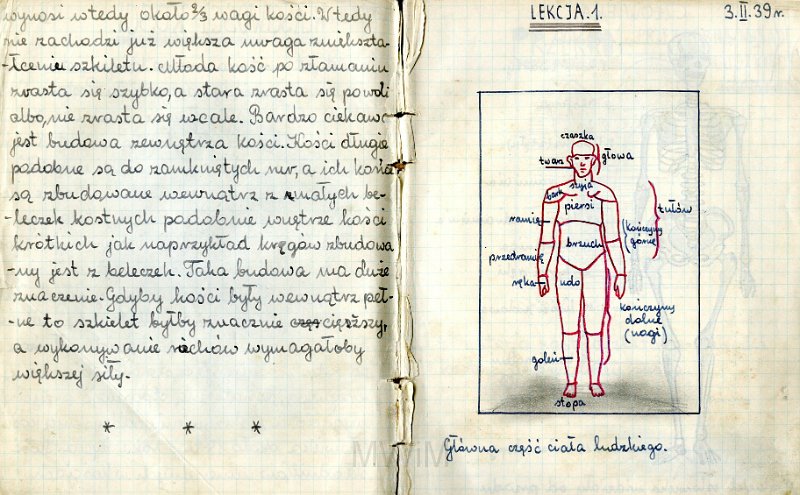 wynosi wtedy około 2/3 wagi kości. Wtedy
nie zachodzi już większa uwaga zmiekszta-
-łcenie szkieletu. Młoda kość po złamaniu
zrasta się szybko, a stara zrasta się powoli
albo, nie zrasta się wcale. Bardzo ciekawa
jest budowa zewnętrza kości. Kości długie
podobne są do zamkniętych rur, a ich końce
są zbudowane wewnątrz z małych be-
-leczek kostnych podobnie wnętrze kości
krótkich jak naprzykład kręgów zbudowa
-ny jest z beleczek. Taka budowa ma duże
znaczenie. Gdyby kości były wewnątrz peł-
-ne to szkielet byłby znacznie cięższy,
a wykonywanie ruchów wymagałoby
większej siły.
* * *
LEKCJA.1.
3.II.39r.
czaszka
twarz
głowa
szyja
bark
piersi
tułów
ramię
kończyny
górne
brzuch
przedramię
ręka
udo
kończyny
dolne
(nogi)
goleń
stopa
Główna część ciała ludzkiego.
MWiM